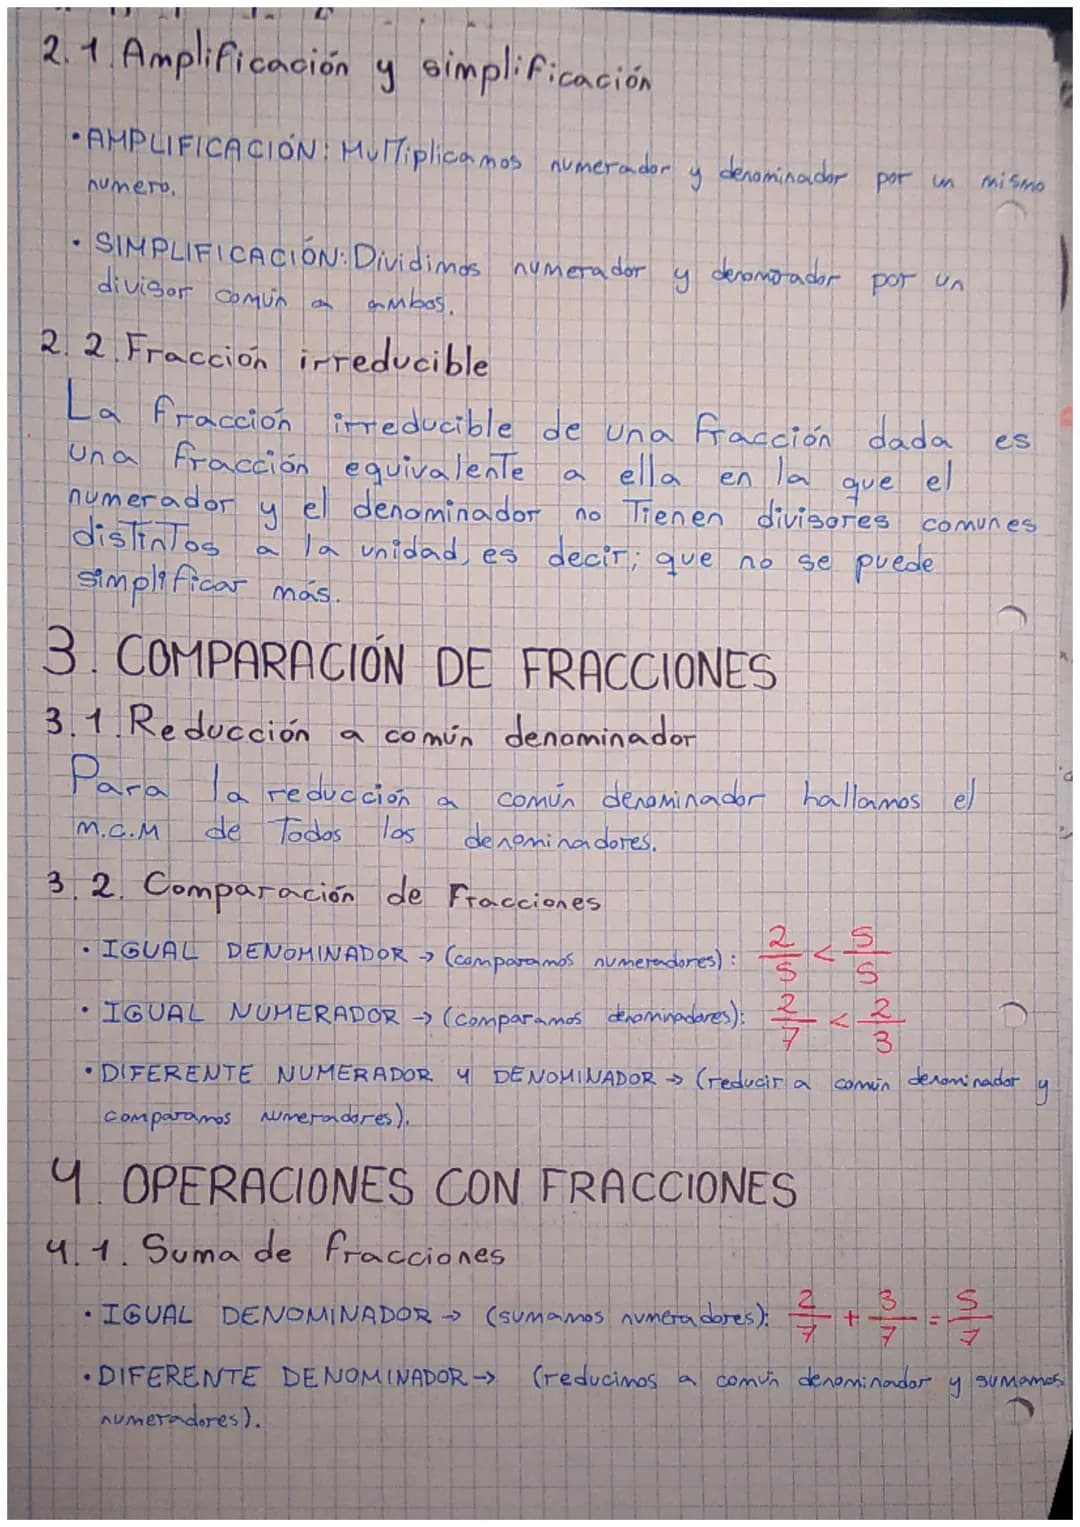 2.1. Amplificación y simplificación
• AMPLIFICACIÓN: Multiplicamos numerador y denominador por un mismo
numero.
• SIMPLIFICACIÓN: Dividimos numerador y denomorador por un
divisor común a ambos.
2.2. Fracción irreducible
La fracción irreducible de una fracción dada es
una fracción equivalente a ella en la que el
numerador y el denominador no Tienen divisores comunes
distintos a la unidad, es decir; que no se puede
simplificar más.
3. COMPARACIÓN DE FRACCIONES
3.1. Reducción a común denominador
Para la reducción a común denominador hallamos el
m.c.M de Todos los denominadores.
3.2. Comparación de Fracciones
• IGUAL DENOMINADOR → (comparamos numeradores): 2/5 < 5/5
• IGUAL NUMERADOR → (comparamos denominadores): 2/7 < 2/3
• DIFERENTE NUMERADOR Y DENOMINADOR → (reducir a común denominador y
comparamos numeradores).
4. OPERACIONES CON FRACCIONES
4.1. Suma de fracciones
• IGUAL DENOMINADOR → (sumamos numeradores): 2/7 + 3/7 = 5/7
• DIFERENTE DENOMINADOR → (reducimos a común denominador y sumamos
numeradores).